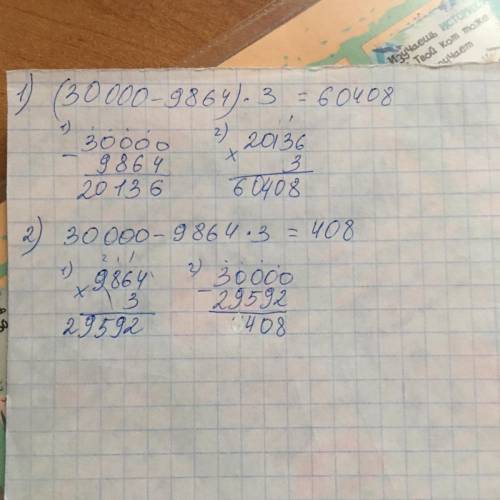 Изучаешь ИСТОРИЮ
Твой кот тоже
1) (30000-9864)·3 = 60408
1) 30000 2) 20136
- 9864 × 3
20136 60408
2) 30000-9864·3 = 408
1) 9864 2) 30000
× 3 - 29592
29592 408